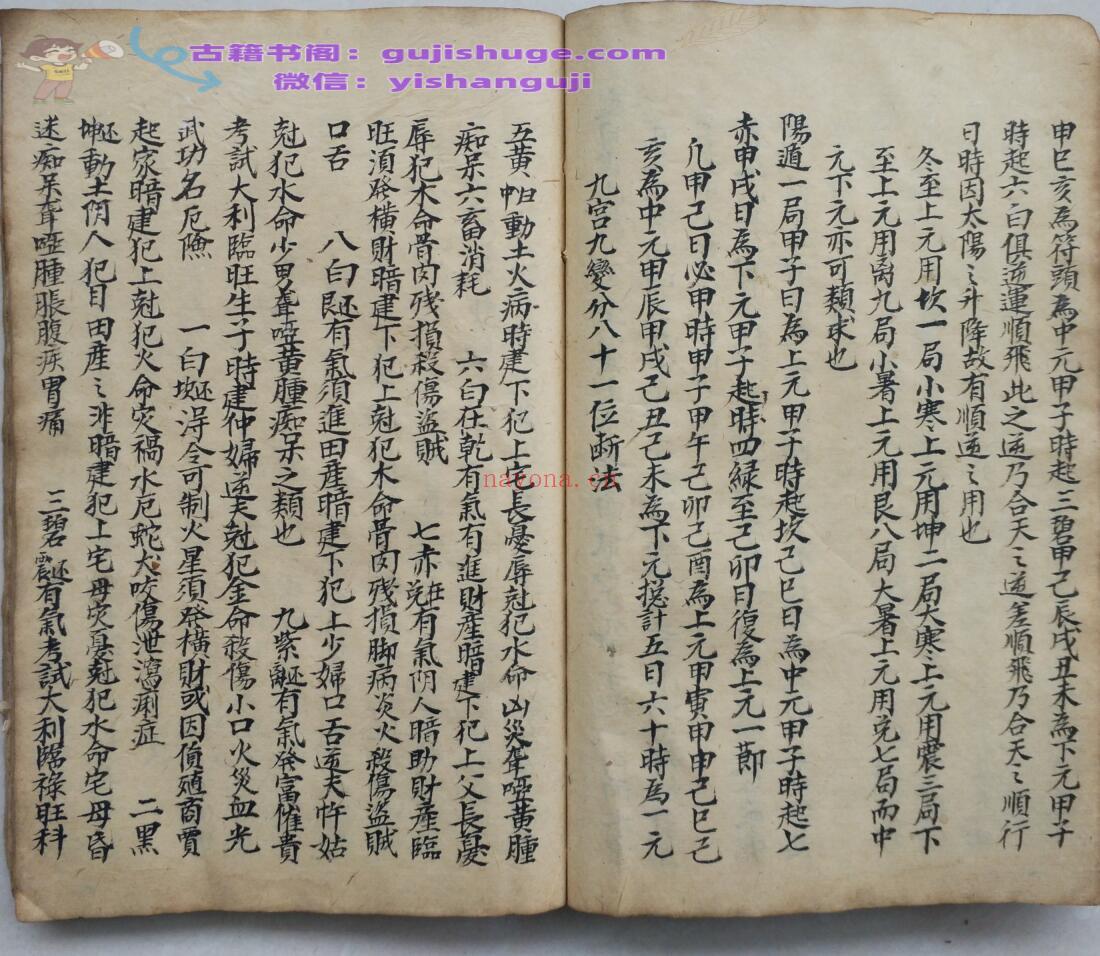 古籍书阁：gujishuge.com
微信：yishanguji
申巳亥為符頭為中元甲子時起三碧甲己辰戌丑未為下元甲子
時起六白俱逆運順飛此之逆乃合天之逆差順飛乃合天之順行
日時因太陽之升降故有順逆之用也
冬至上元用坎一局小寒上元用坤二局大寒上元用震三局下
至上元用离九局小暑上元用艮八局大暑上元用兑七局而中
元下元亦可類求也
陽遁一局甲子日為上元甲子時起坎己巳日為中元甲子時起七
赤甲戌日為下元甲子起時四緑至己卯日復為上元一節
凢甲己日必甲時甲子甲午己卯己酉為上元甲寅甲申己巳己
亥為中元甲辰甲戌己丑己未為下元捴計五日六十時為一元
九宫九變分八十一位断法
五黄動土火病時建下犯上宅長憂辱尅犯水命凶災聾啞黄腫
痴呆六畜消耗 六白在乾有氣有進財產暗建下犯上父長憂
辱犯木命骨肉残損殺傷盜賊 七赤在兑有氣阴人暗助財產臨
旺湏發横財暗建下犯上尅犯木命骨肉残損脚病炎火殺傷盜賊
口舌 八白艮有氣須進田產暗建下犯上少婦口舌逆夫忤姑
尅犯水命少男聾啞黄腫痴呆之類也 九紫離有氣發富催貴
考試大利臨旺生子時建仲婦逆夫尅犯金命殺傷小口火災血光
武功名厄險 一白坎得令可制火星須發横財或因偵殖商賈
起家暗建犯上尅犯火命灾禍水厄蛇犬咬傷泄瀉痢症 二黑
坤動土阴人犯目田產之非暗建犯上宅母灾憂尅犯水命宅母昏
迷痴呆聋啞腫脹腹疾胃痛 三碧震有氣考試大利臨祿旺科
nayona.cn